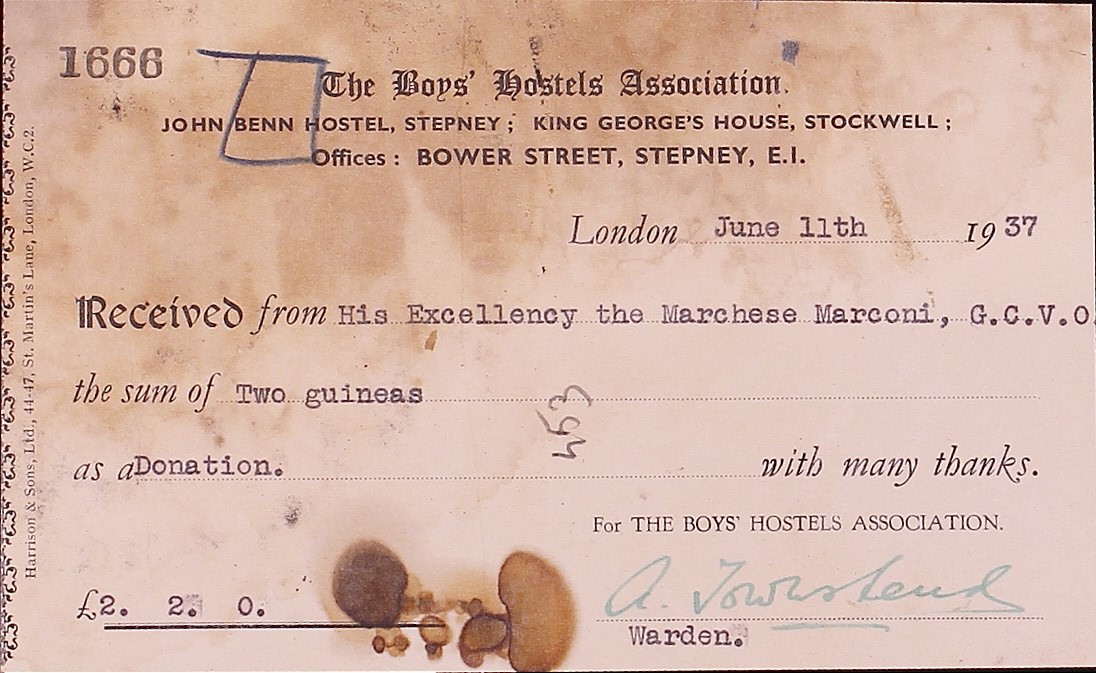 1666
The Boys' Hostels Association.
JOHN BENN HOSTEL, STEPNEY; KING GEORGE'S HOUSE, STOCKWELL;
Offices: BOWER STREET, STEPNEY, E.I.
London June 11th 1937
Received from His Excellency the Marchese Marconi, G.C.V.O.
the sum of Two guineas
as a Donation. with many thanks.
For THE BOYS' HOSTELS ASSOCIATION.
£2. 2. 0.
A. Townsend
Warden.
Harrison & Sons, Ltd., 44-47, St. Martin's Lane, London, W.C.2.